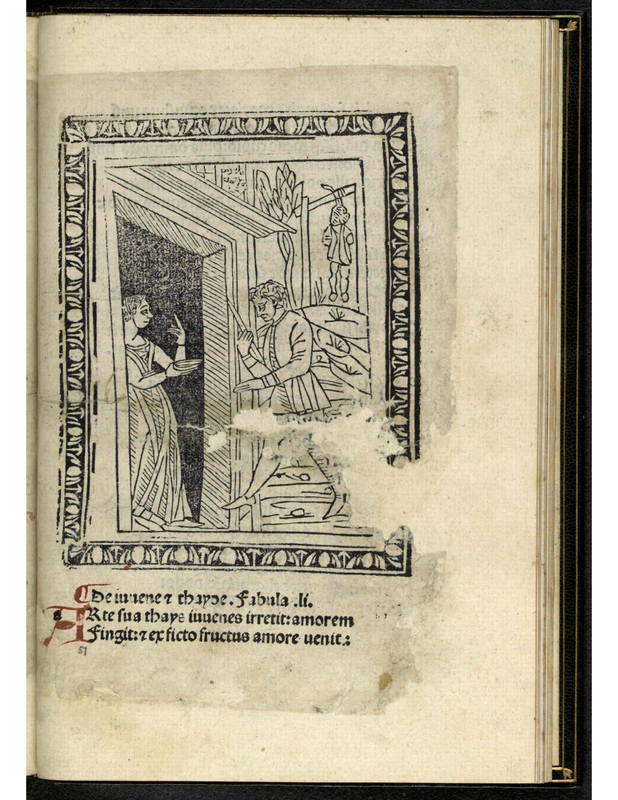 De iuuene ⁊ thayde. Fabula .li.
a
ARte sua thays iuuenes irretit: amorem
Fingit: ⁊ ex ficto fructus amore uenit.:
51